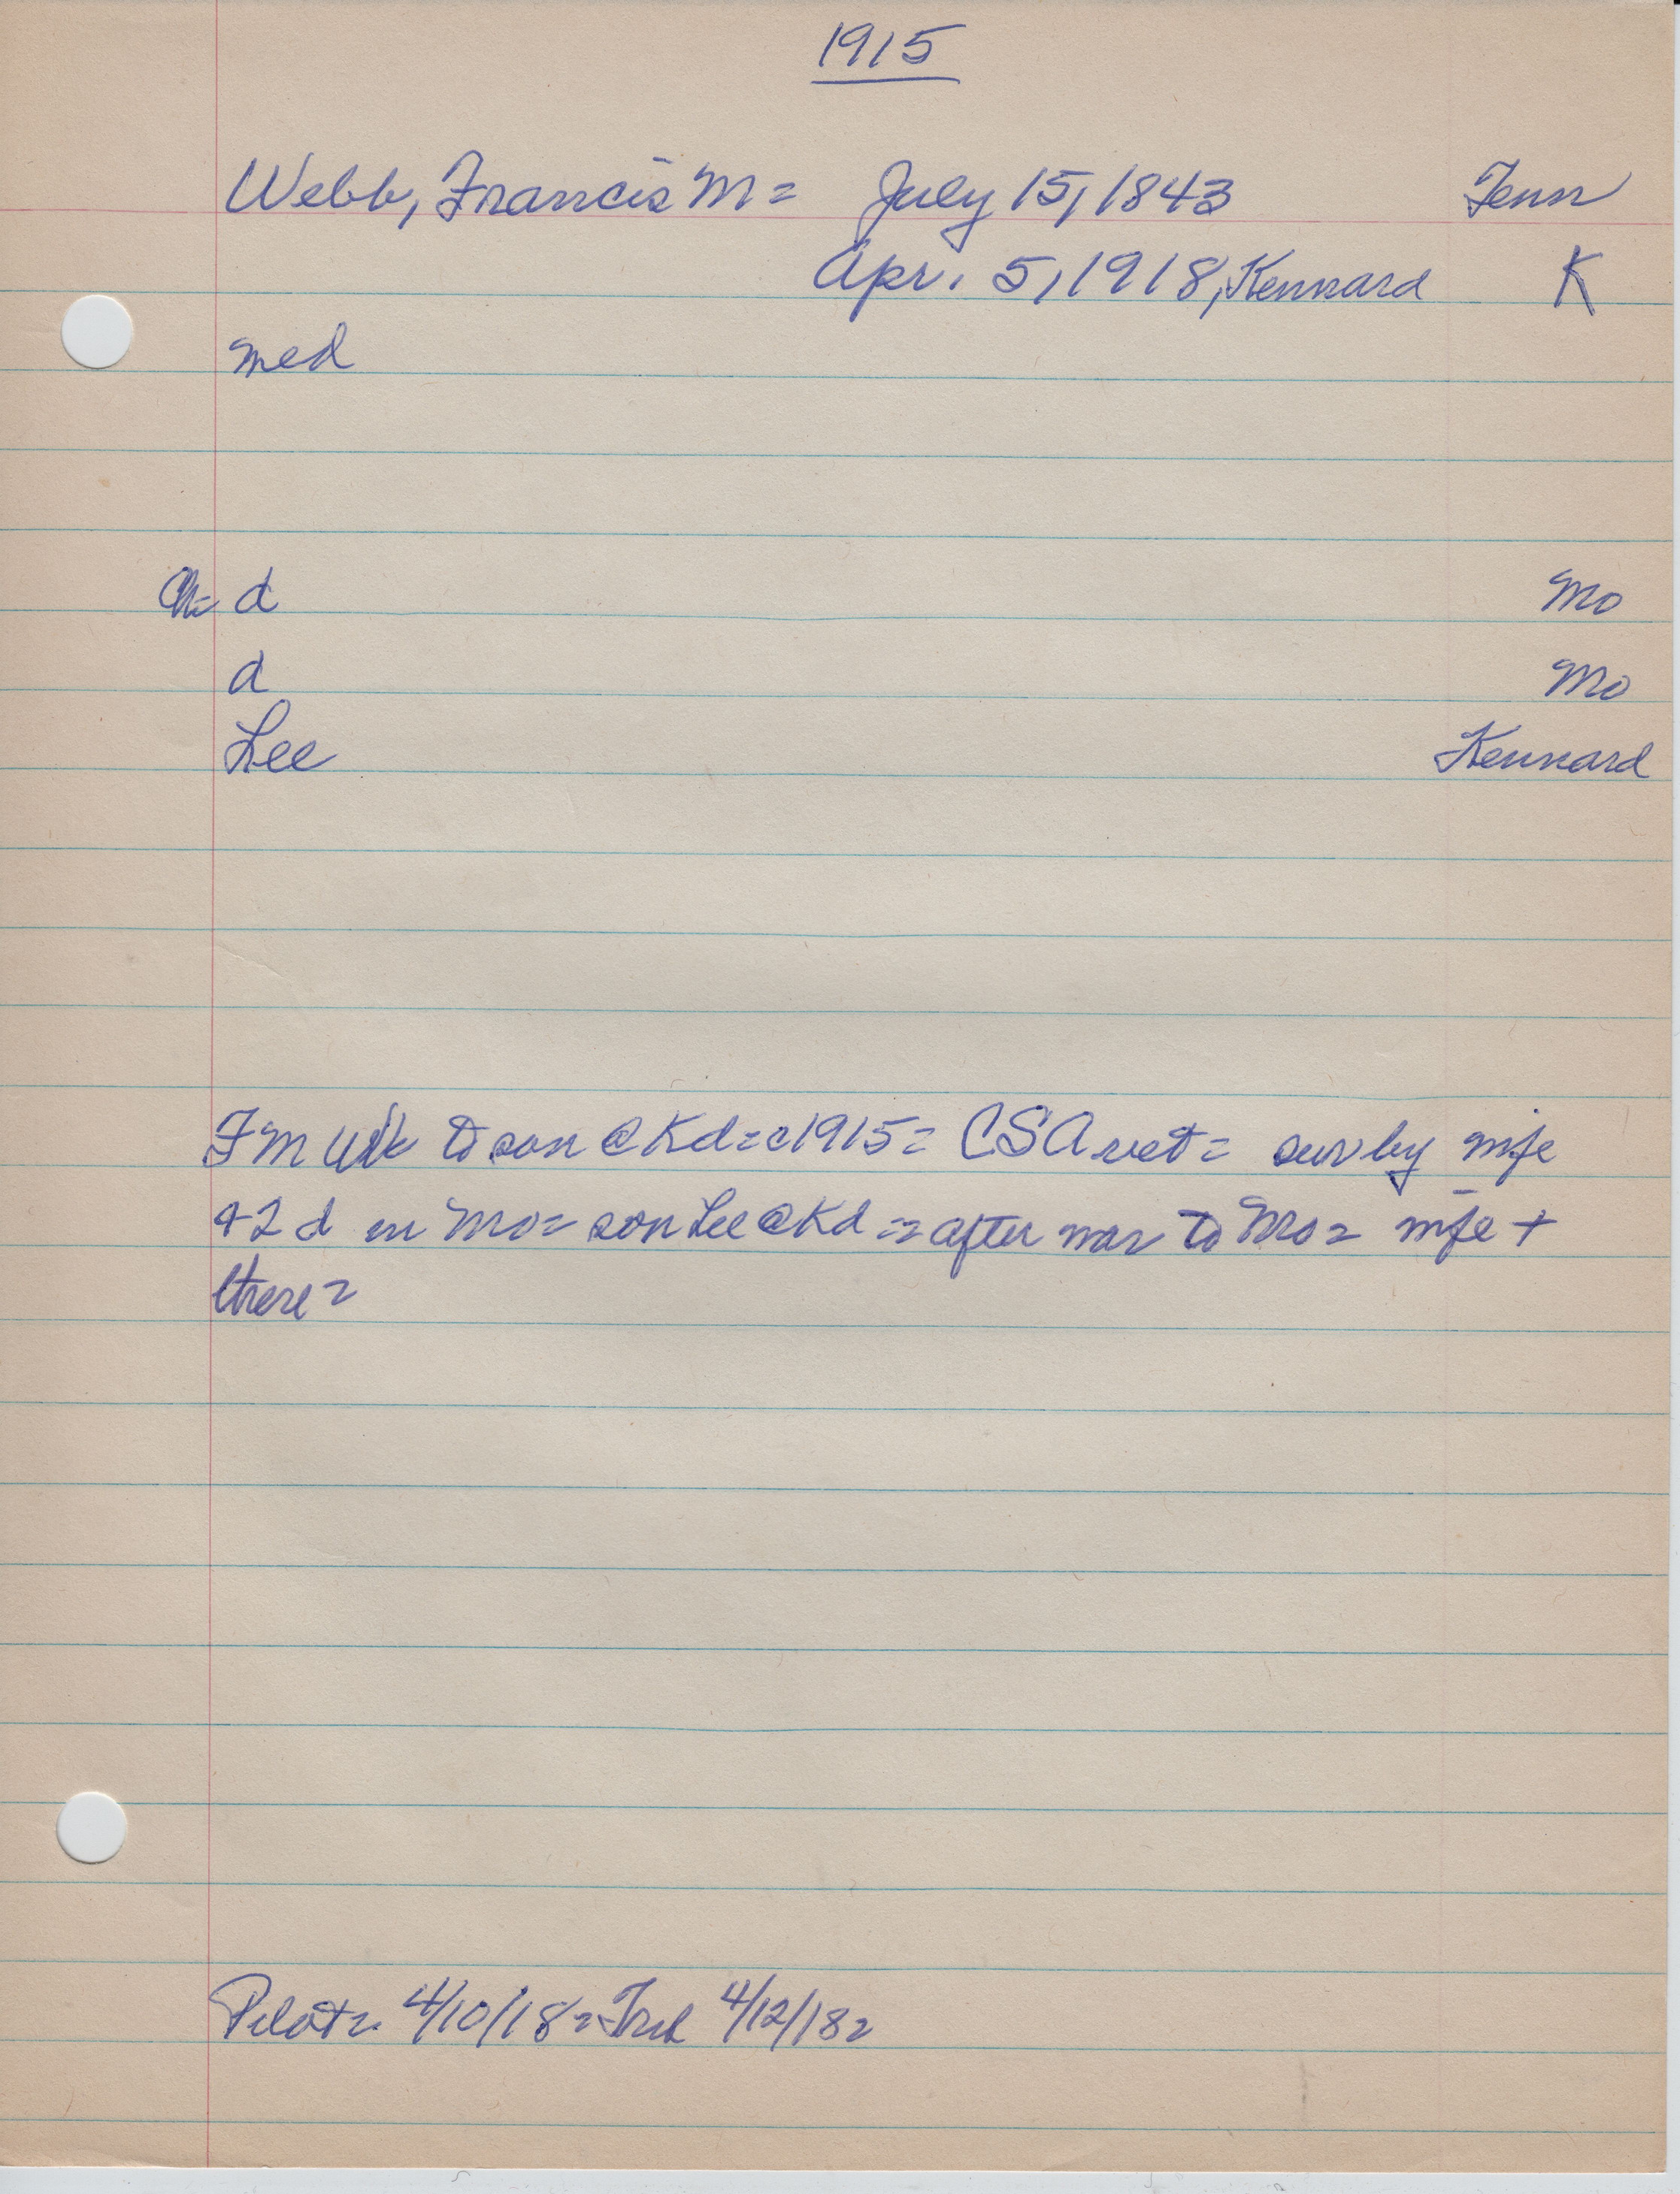 1915
Webb, Francis M = July 15, 1843 Tenn
Apr. 5, 1918, Kennard K
med
Ch = d Mo
d Mo
Lee Kennard
F M to son @ Kd = c1915 = CSA vet = sur by wife
+ 2 d in Mo = son Lee @ Kd = after war to Mo = wife +
there =
Pilot = 4/10/18 = 4/12/18 =